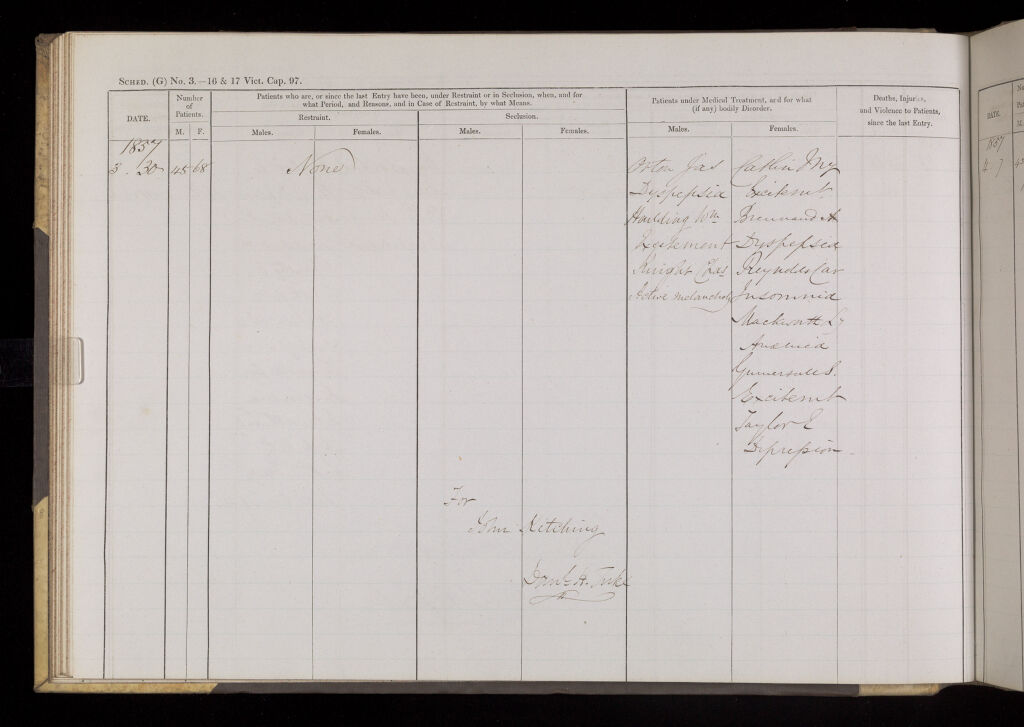 SCHED. (G) No. 3.—16 & 17 Vict. Cap. 97.
DATE.
Number of Patients.
M. F.
Patients who are, or since the last Entry have been, under Restraint or in Seclusion, when, and for
what Period, and Reasons, and in Case of Restraint, by what Means.
Restraint.
Seclusion.
Males. Females. Males. Females.
Patients under Medical Treatment, and for what
(if any) bodily Disorder.
Males. Females.
Deaths, Injuries,
and Violence to Patients,
since the last Entry.
1857
3 . 30 45 68 None
Orton Jas
Dyspepsia
Houlding Wm
Excitement
Knight Chas
Active Melancholy
Catlin My
Excitemt
Brennand A
Dyspepsia
Reynolds Car
Insomnia
Mackworth
Anæmia
S.
Excitemt
Taylor E
Depression
For
John Kitching
Danl. H. Tuke
DATE.
M.
1857
4 . 7